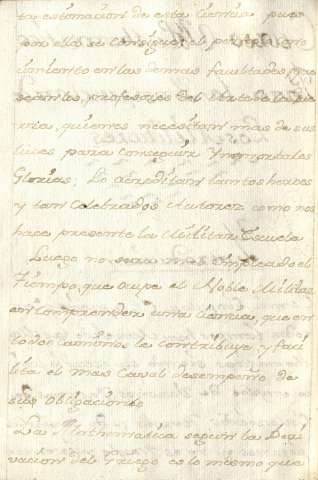 tra estimacion de esta Ciencia pues
con ella se consigue el perfecto cono
cimiento en las demas facultades que
sean los professores del Arte de la Gue
rria, quienes necesitan mas de sus
luces para conseguir Ynmortales
Glorias; Lo acreditan tantos heroes
y tan Celebrados Autores como nos
hace presente la Militar Escuela
Luego no sera mal empleado el
Tiempo, que ocupe el Noble Militar
en Comprender una Ciencia, que en
todos Caminos le contribuye, y faci
lita el mas Caval desempeño de
sus Obligaciones
La Mathematica segun la Deri
vacion del Griego es lo mismo que